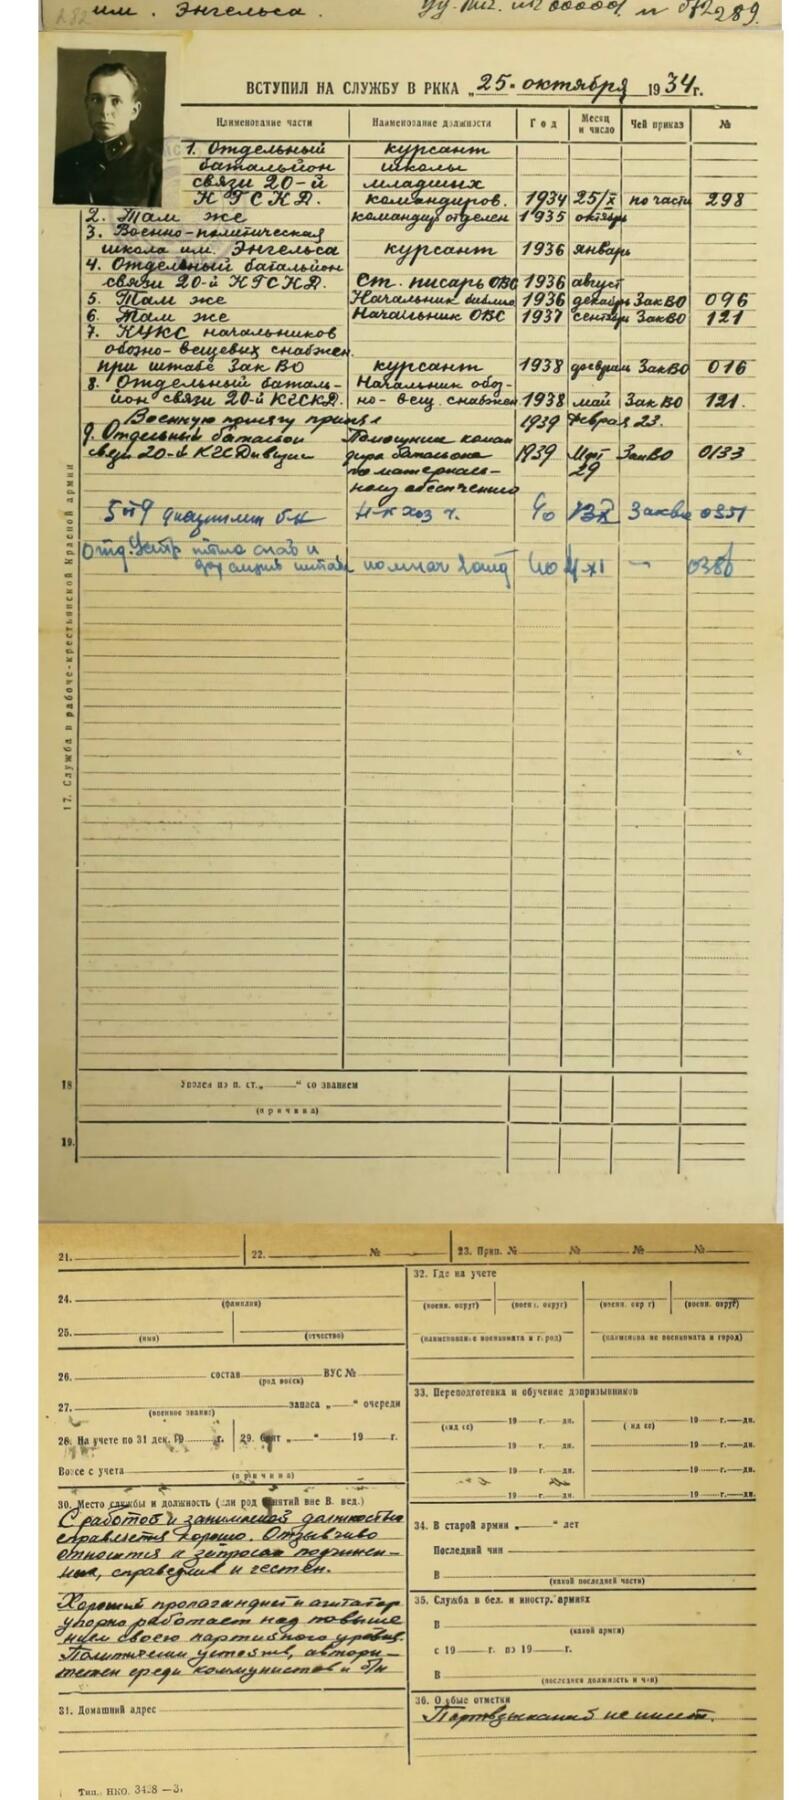 282 им. Энгельса.
ВСТУПИЛ НА СЛУЖБУ В РККА „25. октября 1934 г.
Наименование части Наименование должности Год Месяц и число Чей приказ №
1. Отдельный курсант
батальйон школы
связи 20-й младших
КГСКД. командиров. 1934 25/X по части 298
2. Там же командир отделен 1935 октябрь
3. Военно-политическая
школа им. Энгельса курсант 1936 январь
4. Отдельный батальйон
связи 20-й КГСКД. ст. писарь ОВС 1936 август
5. Там же Начальник 1936 декабрь ЗакВО 096
6. Там же Начальник ОВС 1937 сентябр ЗакВО 121
7. КУКС начальников
обозно-вещевых снабжен.
при штабе ЗакВО курсант 1938 февраль ЗакВО 016
8. Отдельный баталь- Начальник обоз-
йон связи 20-й КГСКД. но-вещ. снабжен 1938 май ЗакВО 121.
Военную присягу принял 1939 Февраля 23.
9. Отдельный батальон Помощник коман
связи 20-й КГСДивизии дира батальона 1939 Март 29 ЗакВО 0133
по материаль-
ному обеспечению
Н-к хоз ч. 40 ЗакВО 0351
40 XI 0380
17. Служба в рабоче-крестьянской Красной армии
18 Уволен по п. ст. „ “ со званием
(причина)
19.
21. 22. № 23. Прип. № № № №
24.
(фамилия)
25.
(имя) (отчество)
26. состав ВУС №
(род войск)
27. запаса „ “ очереди
(военное звание)
28. На учете по 31 дек. 19 г. 29. „ “ 19 г.
с учета
(причина)
30. Место службы и должность (или род занятий вне В. вед.)
С работой и занимаемой должностью
справляется хорошо. Отзывчиво
относится к запросам подчинен-
ных, справедлив и честен.
Хороший пропагандист и агитатор
упорно работает над повыше
нием своего партийного уровня.
Политически устойчив, автори-
тетен среди коммунистов и б/п
31. Домашний адрес
32. Где на учете
(воен. округ) (воен. округ) (воен. окр г) (воен. округ)
(наименование военкомата и город) (наименова ие военкомата и город)
33. Переподготовка и обучение допризывников
19 г. дн. 19 г. дн.
19 г. дн. 19 г. дн.
19 г. дн. 19 г. дн.
19 г. дн. 19 г. дн.
34. В старой армии „ “ лет
Последний чин
В
(какой последней части)
35. Служба в бел. и иностр. армиях
В
(какой армии)
с 19 г. по 19 г.
В
(последняя должность и чин)
36. Особые отметки
Партвзысканий не имеет.
Тип. НКО. 3428 —3.